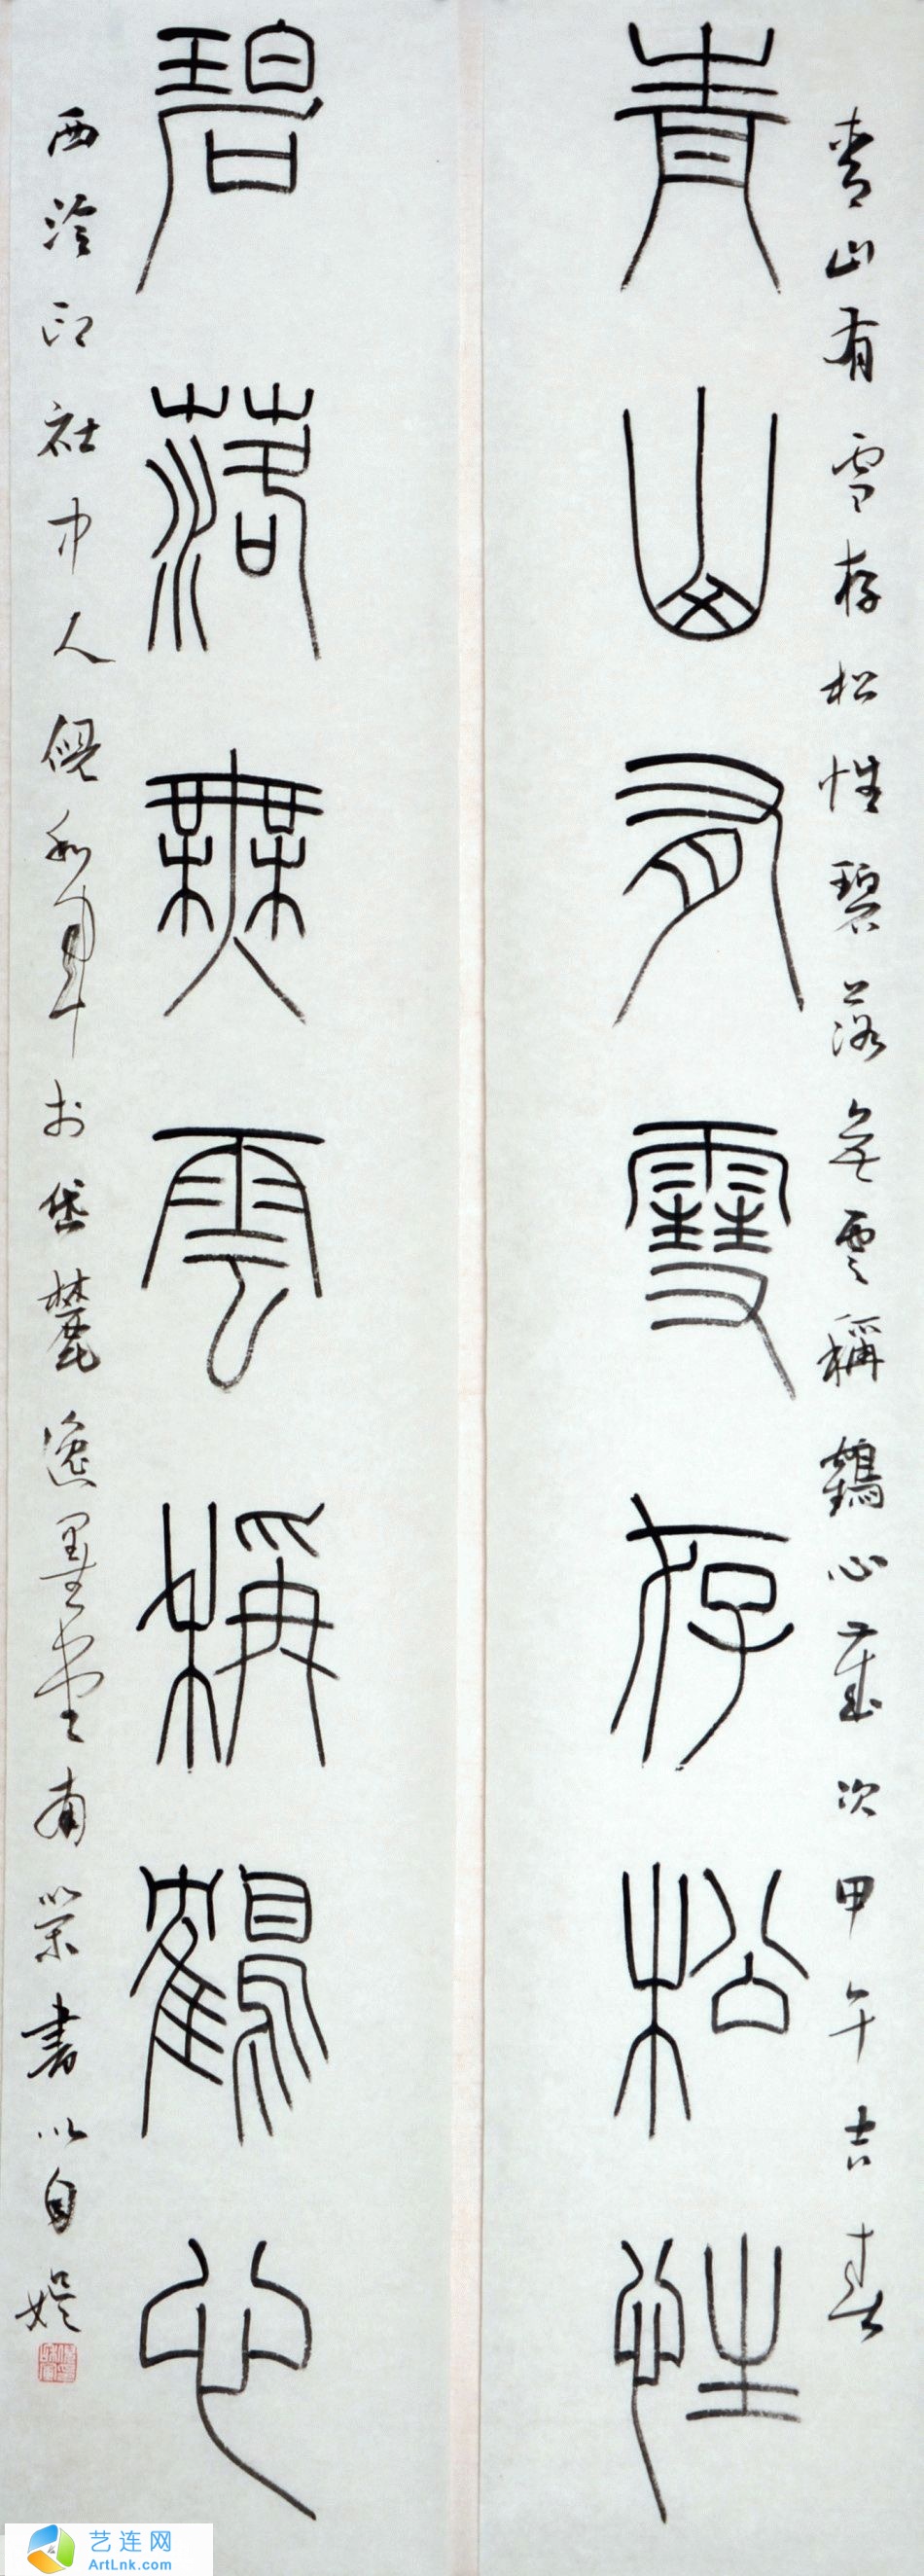 青山有雪存松性碧落無雲稱鶴心歲次甲午吉春
青山有雪存松性
碧落無雲稱鶴心
西泠印社中人倪和軍於岱麓逸墨堂南榮書以自娛
艺连网
ArtLnk.com